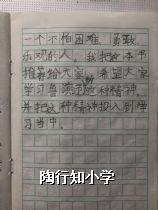 一个不怕困难 勇敢、
乐观的人。我把这本书
推荐给大家 希望大家
学习鲁滨逊这种精神，
并把这种精神投入到学
习当中。
陶行知小学